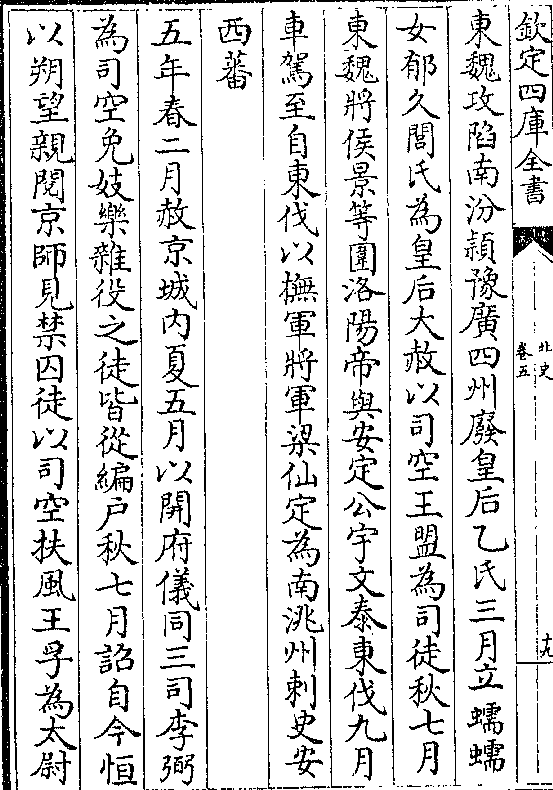 欽定四庫全書
北史
卷五
十九
東魏攻陷南汾潁豫廣四州廢皇后乙氏三月立蠕蠕
女郁久閭氏為皇后大赦以司空王盟為司徒秋七月
東魏將侯景等圍洛陽帝與安定公宇文泰東伐九月
車駕至自東伐以撫軍將軍梁仙定為南洮州刺史安
西蕃
五年春二月赦京城内夏五月以開府儀同三司李弼
為司空免妓樂雜役之徒皆從編户秋七月詔自今恒
以朔望親閲京師見禁囚徒以司空扶風王孚為太尉